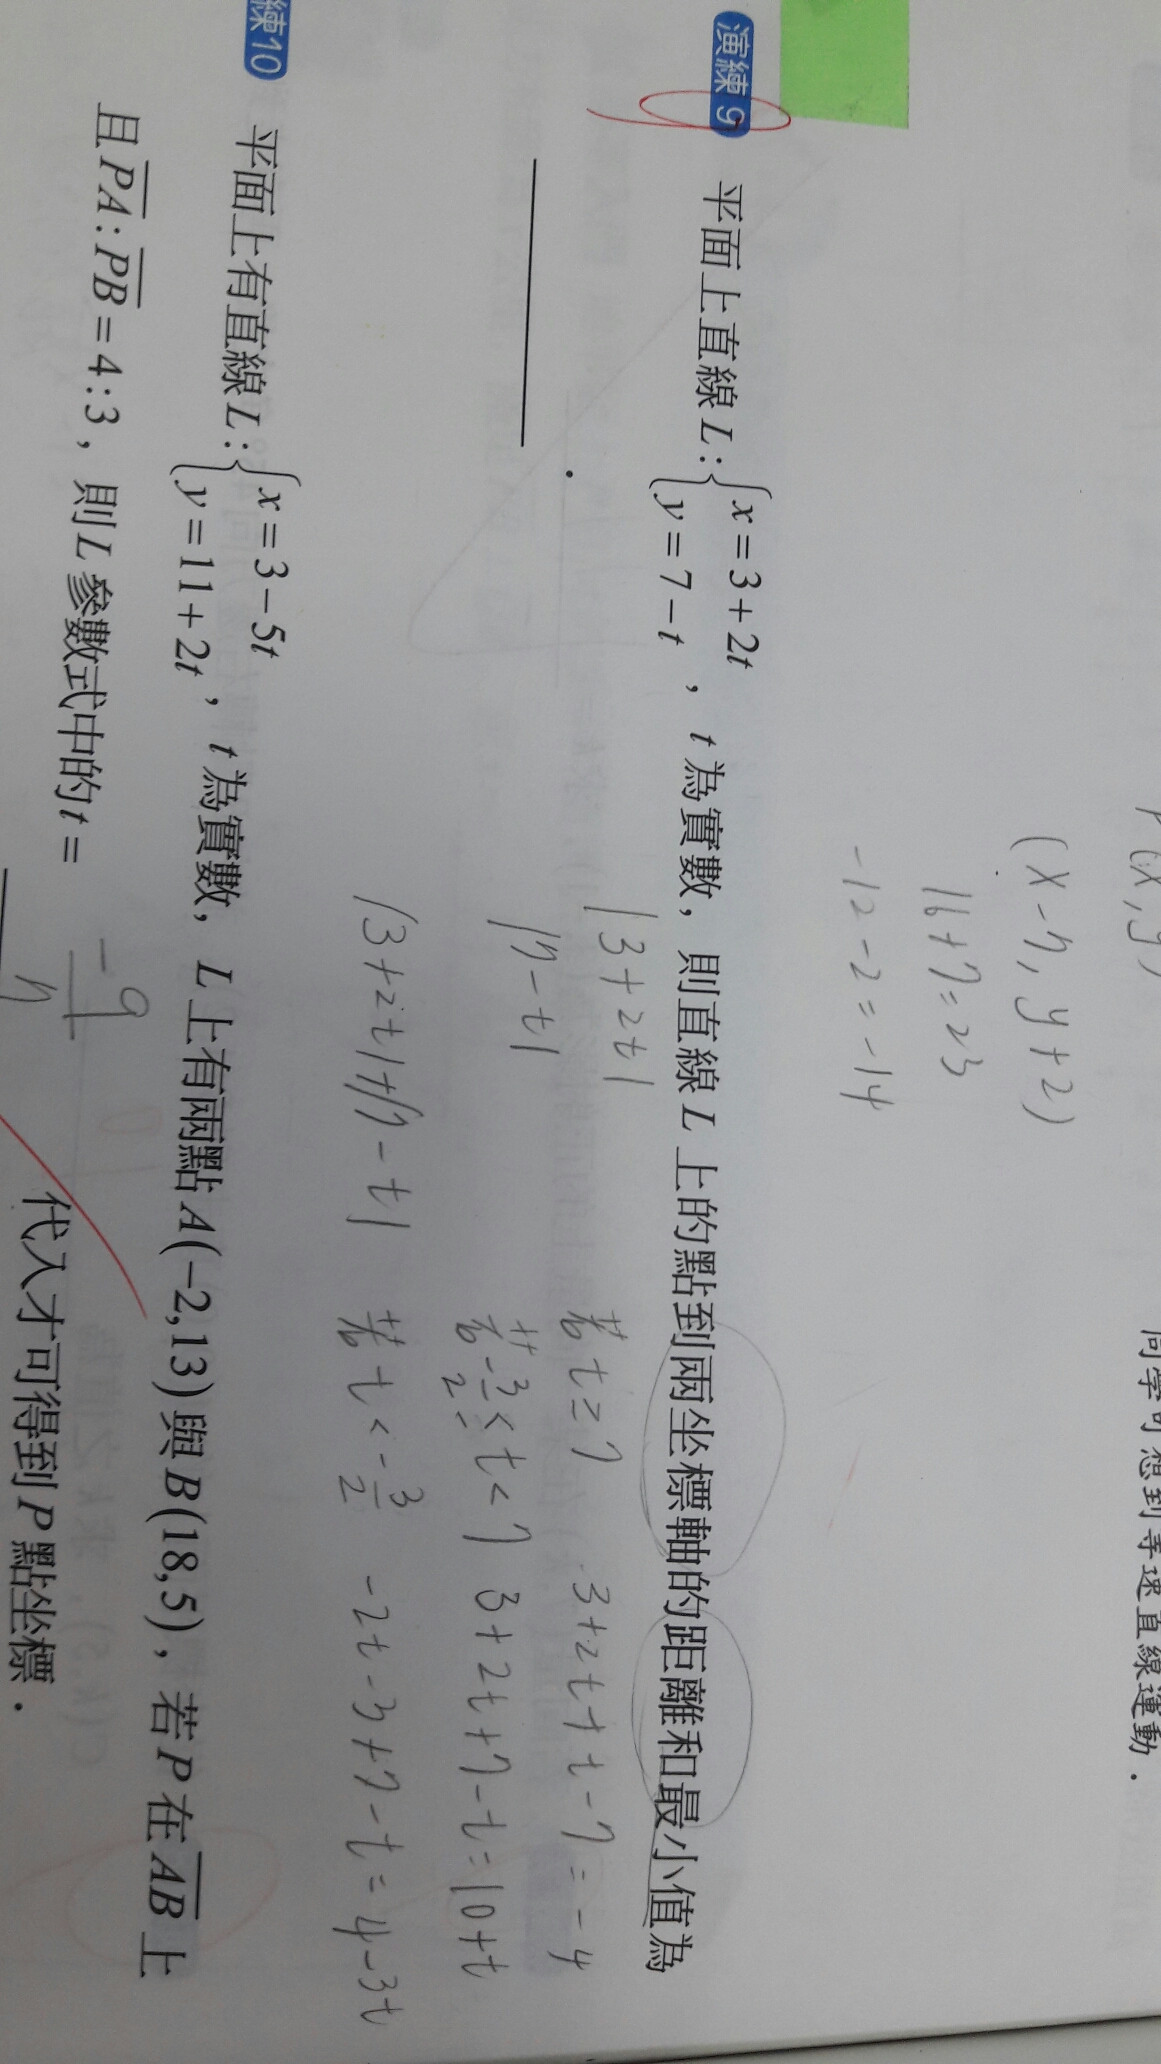 P(x,y)
同學可想到等速直線運動．
(x-7, y+2)
16+7=23
-12-2=-14
演練9 平面上直線 L：{x=3+2t
y=7-t ， t 為實數，則直線 L 上的點到兩坐標軸的距離和最小值為
|3+2t| 若 t≥7 3+2t+t-7=-4
|7-t| 若 -3/2≤t<7 3+2t+7-t=10+t
|3+2t|+|7-t| 若 t<-3/2 -2t-3+7-t=4-3t
練10 平面上有直線 L：{x=3-5t
y=11+2t ， t 為實數，L 上有兩點 A(-2,13) 與 B(18,5)，若 P 在 AB 上
且 PA：PB=4：3，則 L 參數式中的 t= -9/7
代入才可得到 P 點坐標．